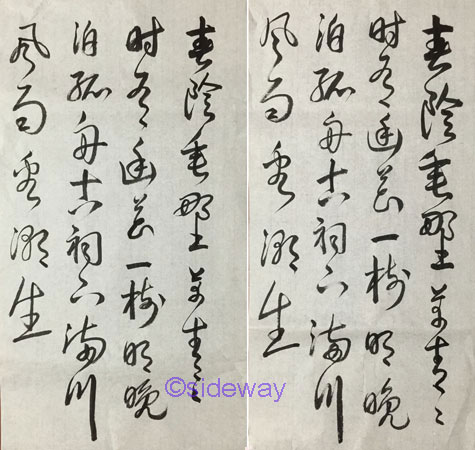 春陰垂野草青〻
时有幽花一樹明晚
泊孤舟古祠下滿川
風雨看潮生
春陰垂野草青〻
时有幽花一樹明晚
泊孤舟古祠下滿川
風雨看潮生
©sideway